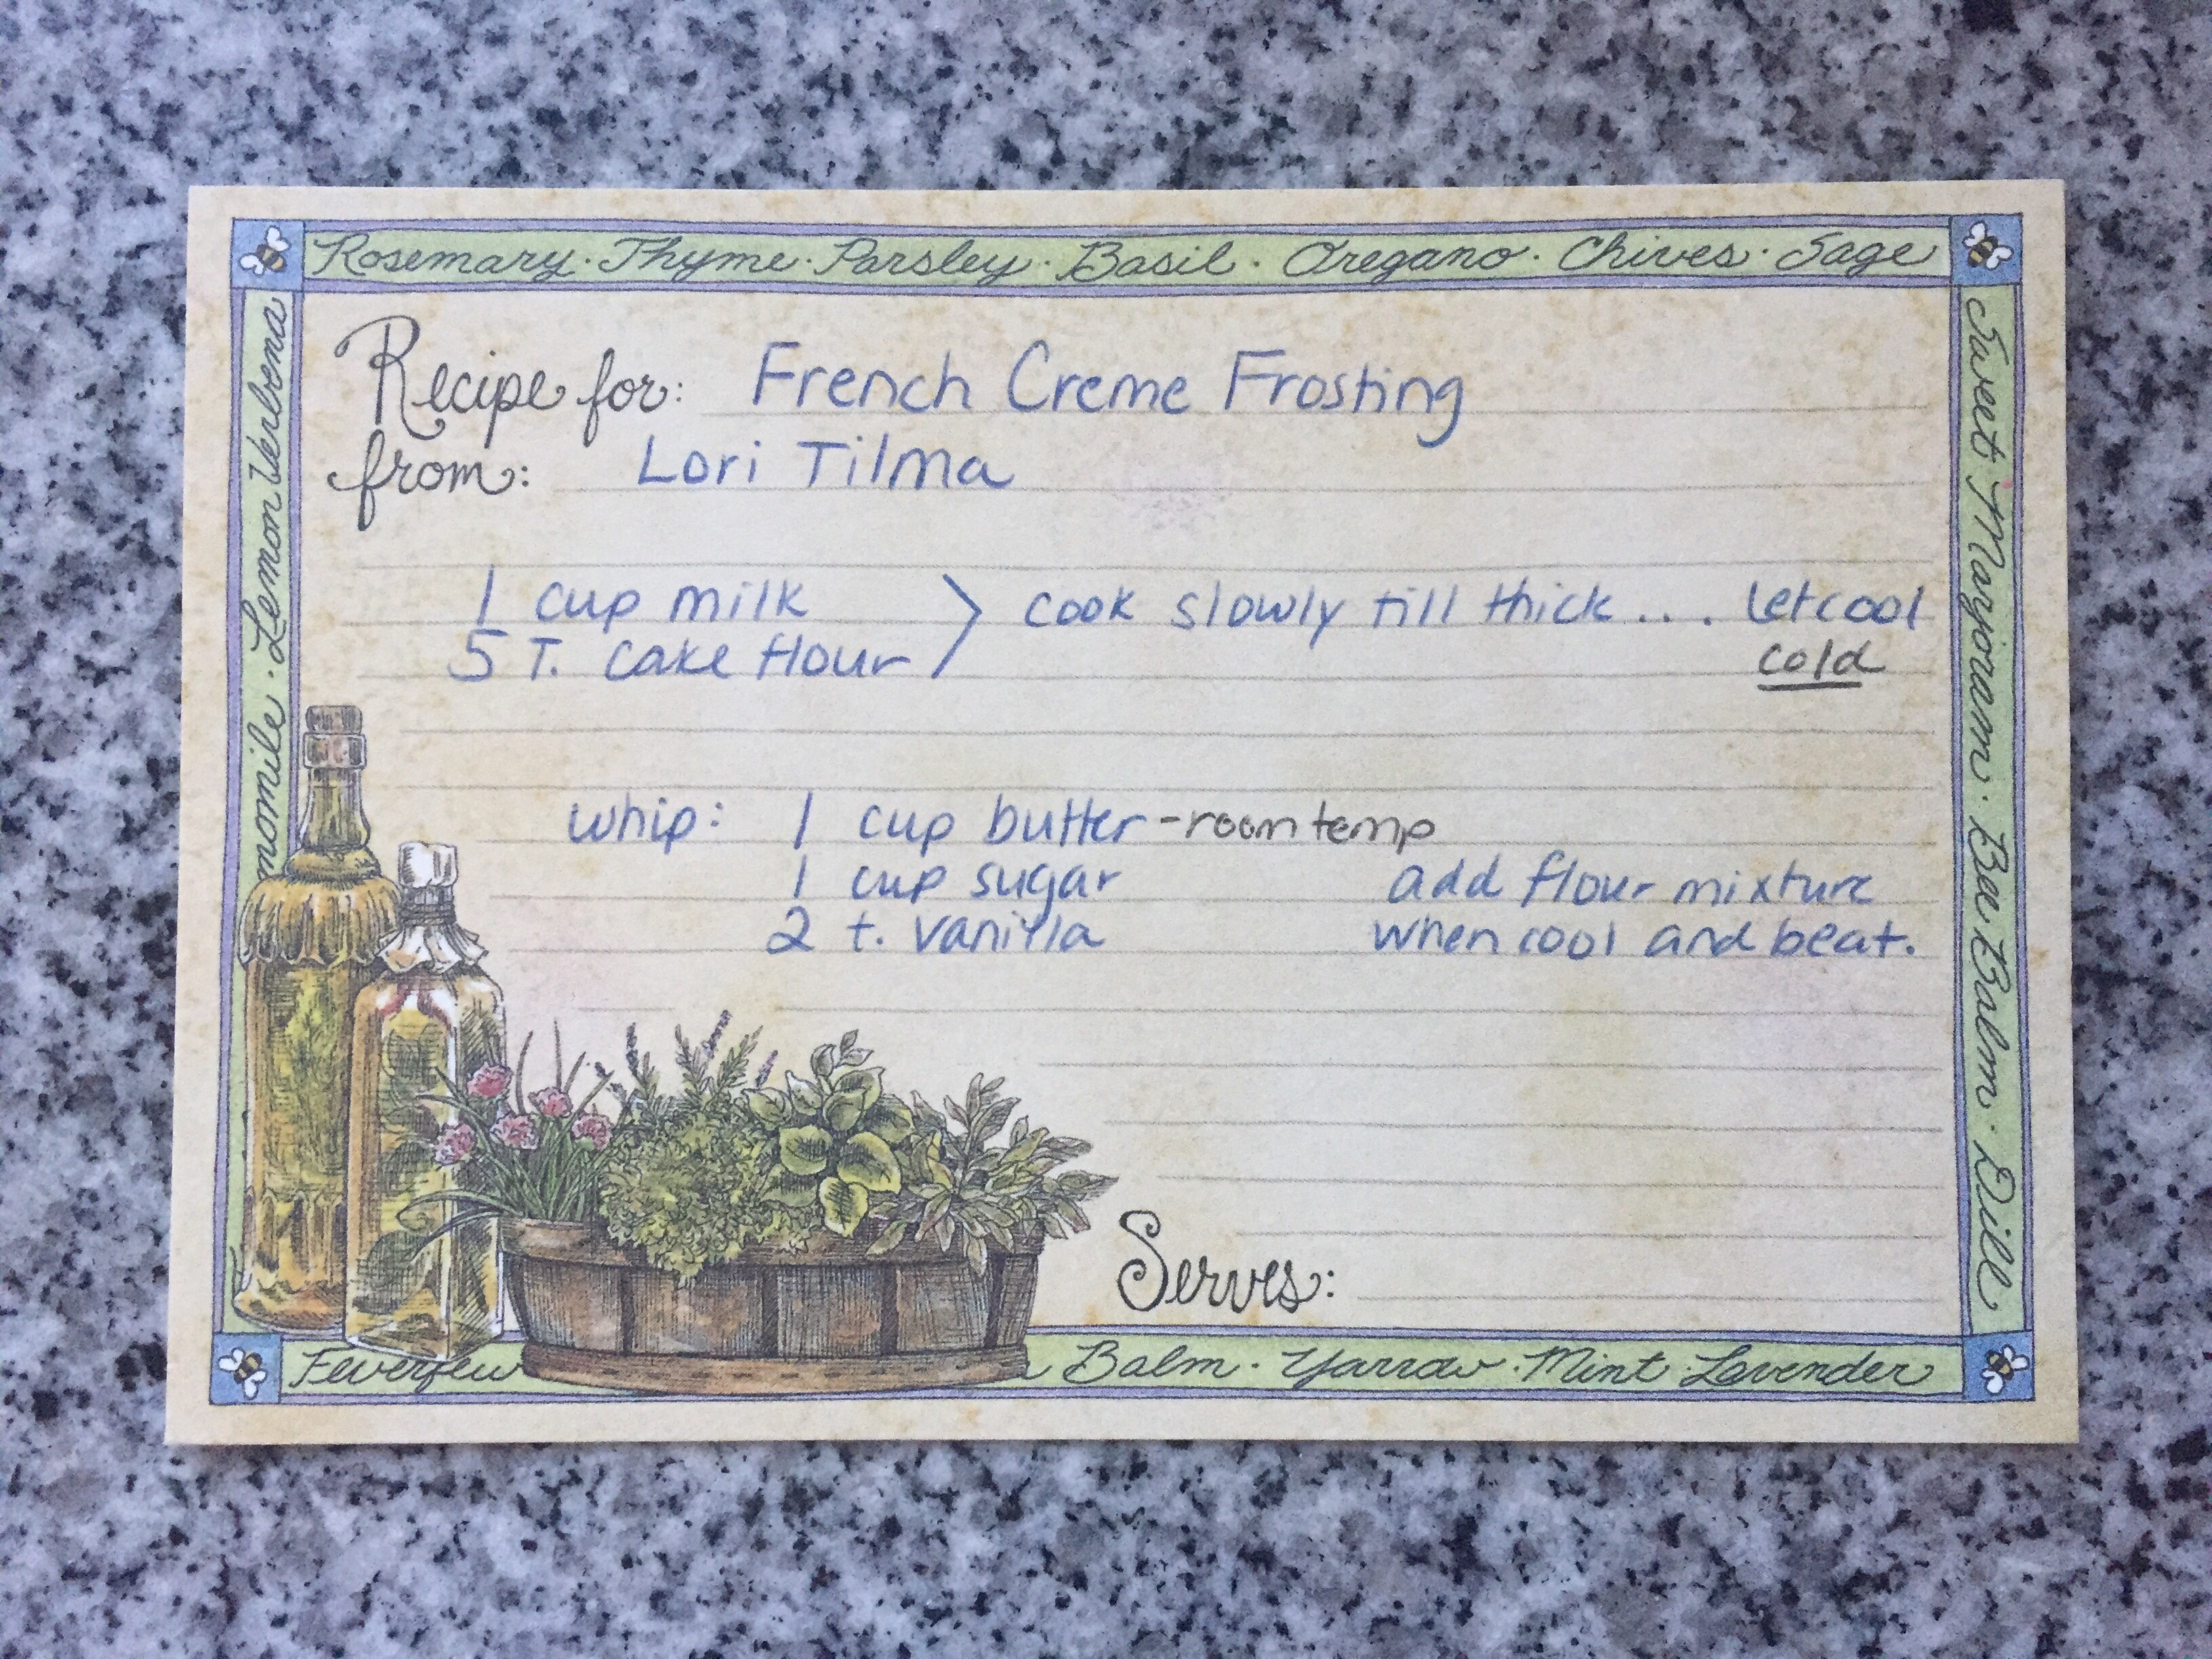 Rosemary · Thyme · Parsley · Basil · Oregano · Chives · Sage
Recipe for: French Creme Frosting
from: Lori Tilma
1 cup milk > cook slowly till thick.... let cool
5 T. cake flour cold
whip: 1 cup butter - room temp
1 cup sugar add flour mixture
2 t. vanilla when cool and beat.
Serves:
momile · Lemon Verbena
Sweet Marjoram · Bee Balm · Dill
Feverfew Balm · Yarrow · Mint · Lavender